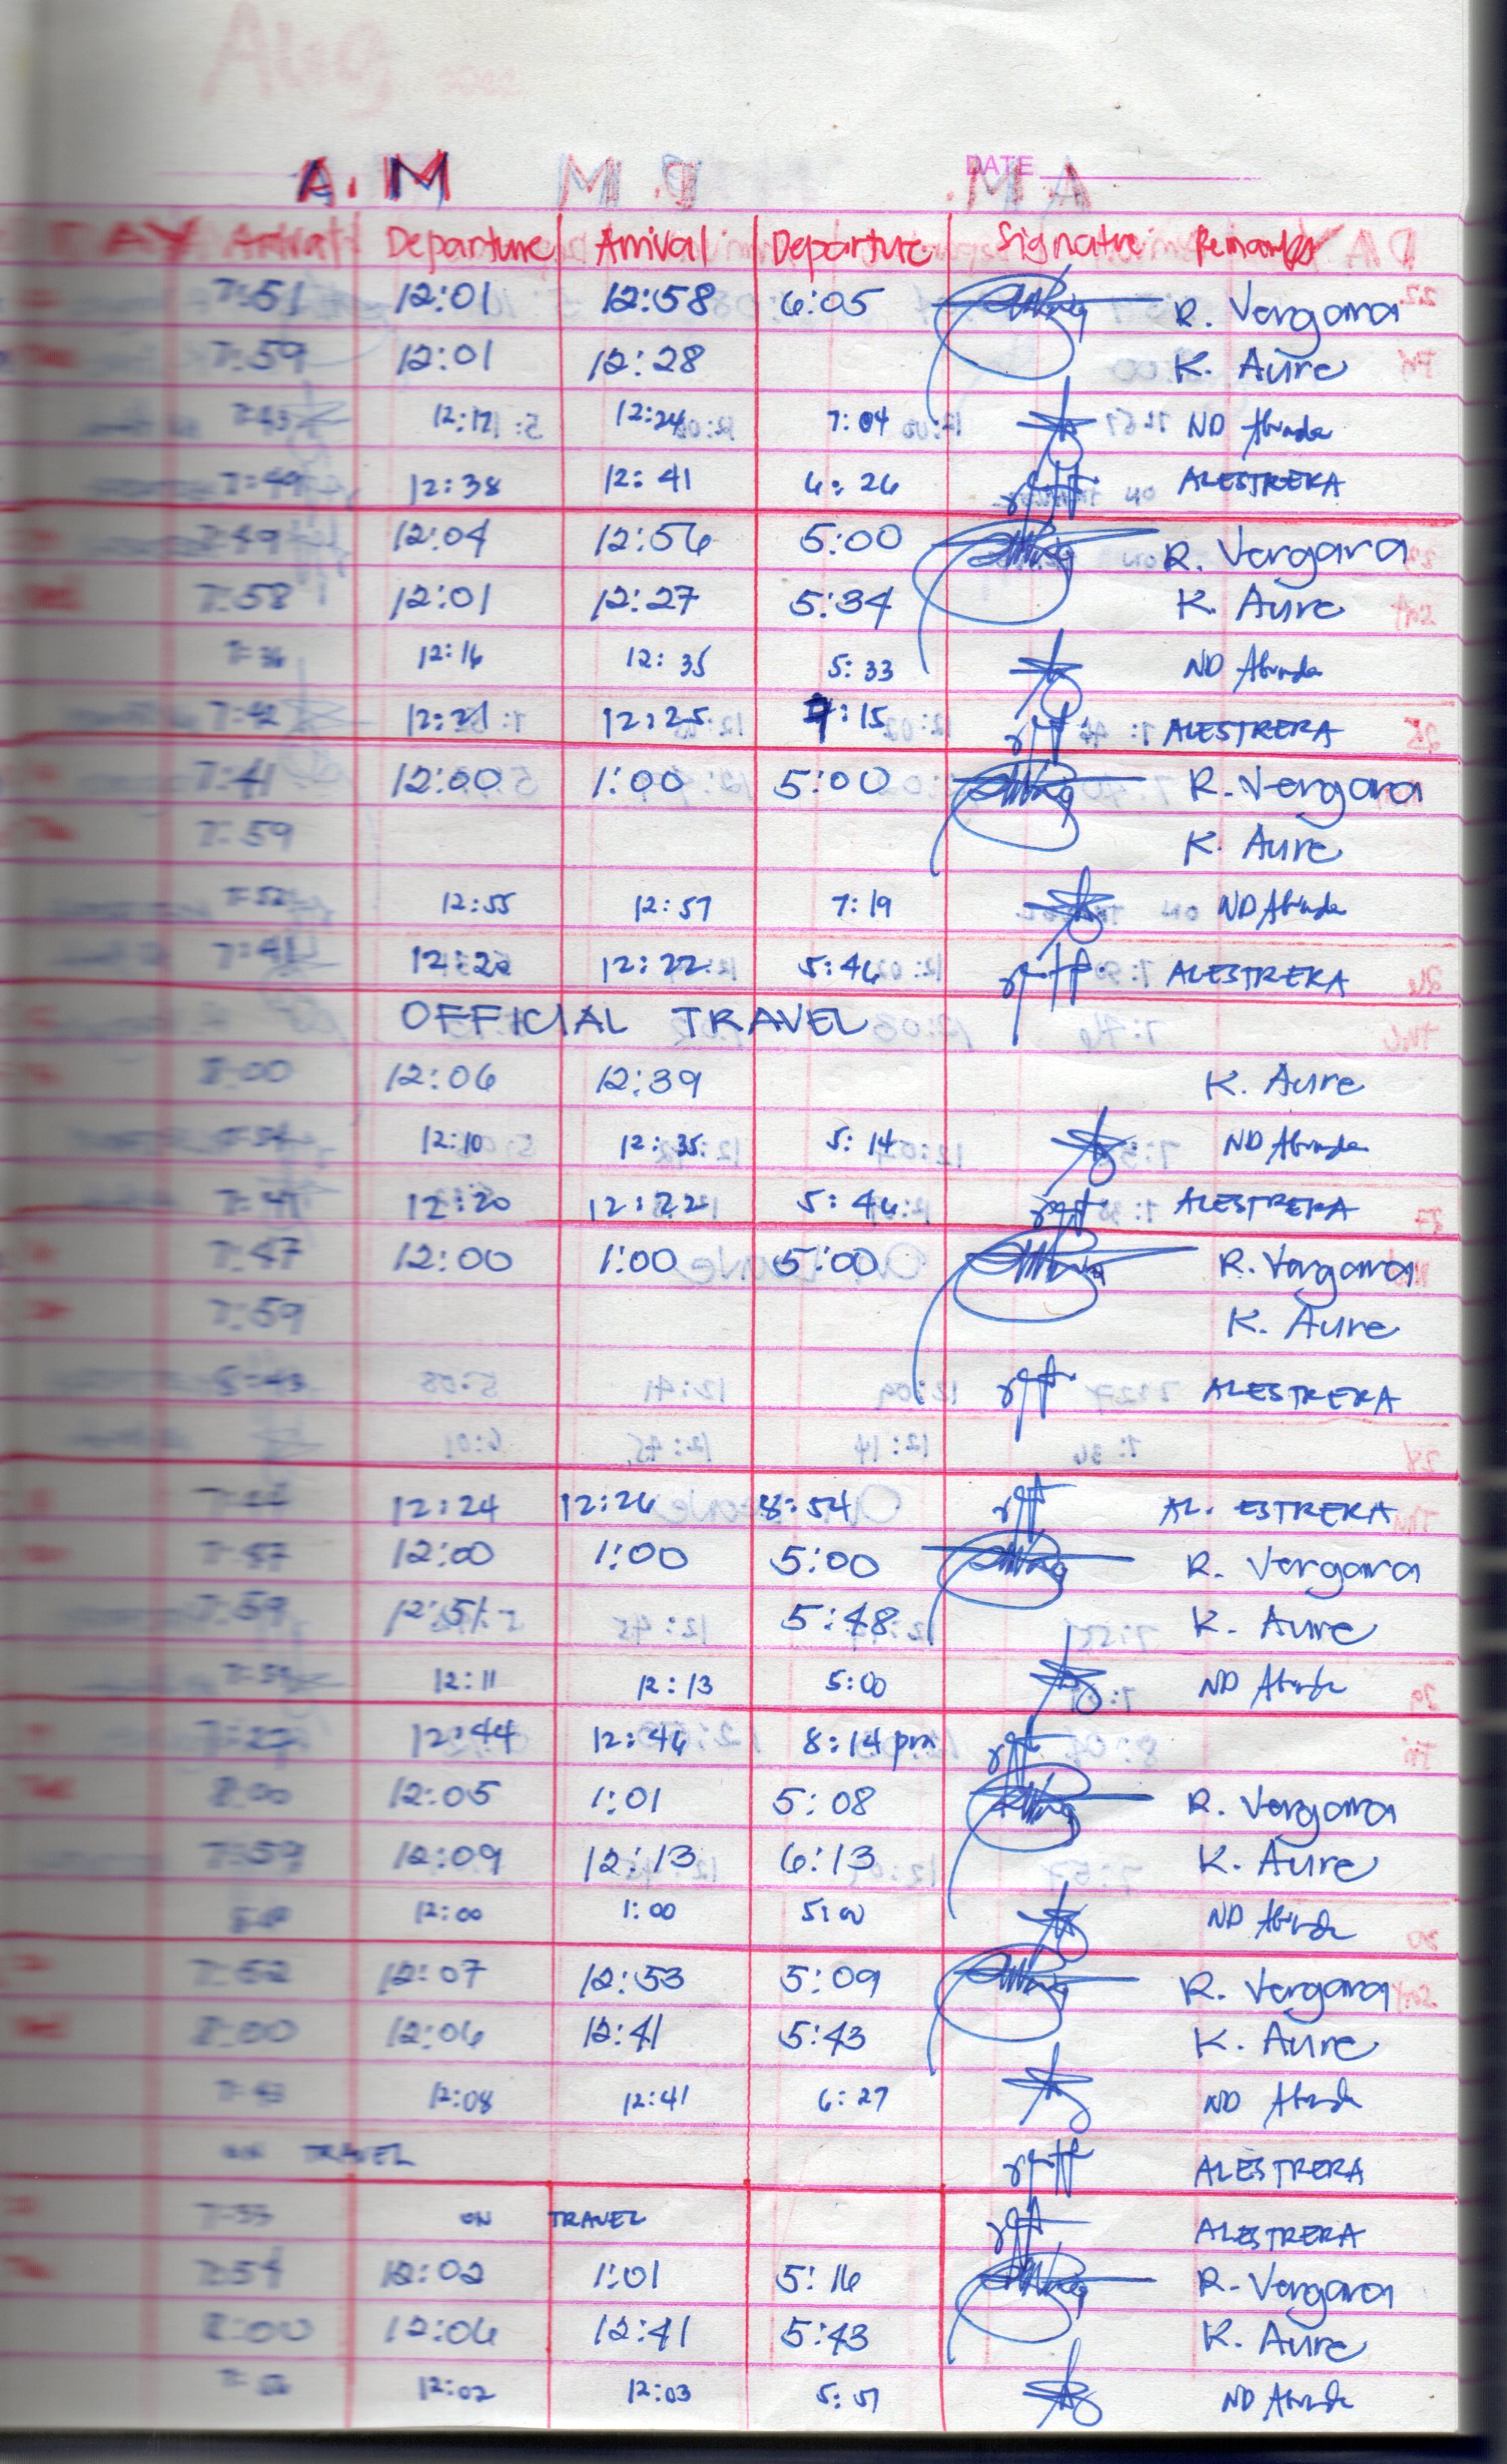 Aug 2022
A.M
DATE
DAY Arrival Departure Arrival Departure Signature Remarks
7:51 12:01 12:58 6:05 R. Vergara
7:59 12:01 12:28 K. Aure
7:43 12:17 12:24 7:04 ND Abunda
7:49 12:38 12:41 6:26 ALESTRERA
7:49 12:04 12:56 5:00 R. Vergara
7:58 12:01 12:27 5:34 K. Aure
7:36 12:16 12:35 5:33 ND Abunda
7:42 12:21 12:25 7:15 ALESTRERA
7:41 12:00 1:00 5:00 R. Vergara
7:59 K. Aure
7:52 12:55 12:57 7:19 ND Abunda
7:41 12:20 12:22 5:46 ALESTRERA
OFFICIAL TRAVEL
8:00 12:06 12:39 K. Aure
12:10 12:35 5:14 ND Abunda
7:41 12:20 12:22 5:46 ALESTRERA
7:47 12:00 1:00 5:00 R. Vergara
7:59 K. Aure
ALESTRERA
12:24 12:26 8:54 AL. ESTRERA
7:57 12:00 1:00 5:00 R. Vergara
7:59 12:51 5:48 K. Aure
12:11 12:13 5:00 ND Abunda
12:44 12:46 8:14 pm
8:00 12:05 1:01 5:08 R. Vergara
7:59 12:09 12:13 6:13 K. Aure
12:00 1:00 5:00 ND Abunda
7:52 12:07 12:53 5:09 R. Vergara
8:00 12:06 12:41 5:43 K. Aure
7:43 12:08 12:41 6:27 ND Abunda
ON TRAVEL ALESTRERA
7:55 ON TRAVEL ALESTRERA
7:54 12:02 1:01 5:16 R. Vergara
8:00 12:06 12:41 5:43 K. Aure
12:02 12:03 5:51 ND Abunda